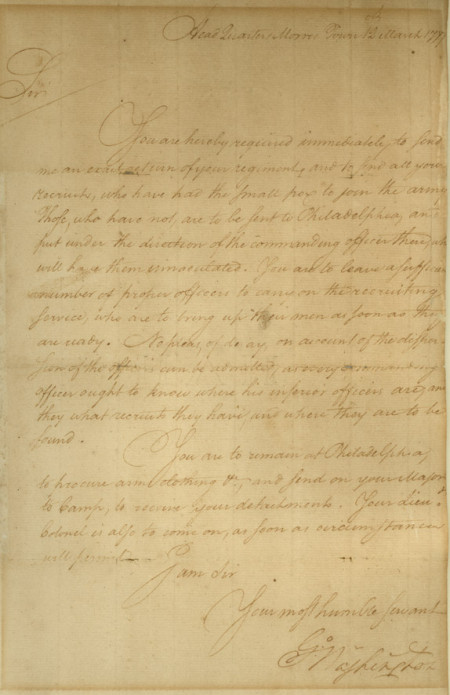 Head Quarters Morris Town 12th March 1777
Sir
You are hereby required immediately to send
me an exact return of your regiment, and to send all your
recruits, who have had the small pox to join the army
Those, who have not, are to be sent to Philadelphia, and
put under the direction of the commanding officer there, who
will have them innoculated. You are to leave a sufficient
number of proper officers to carry on the recruiting
service, who are to bring up their men as soon as they
are ready. No pleas, of delay, on account of the disper-
sion of the officers can be admitted, as every commanding
officer ought to know where his inferior officers are, and
they what recruits they have, and where they are to be
found.
You are to remain at Philadelphia,
to procure arms, clothing &c, and send on your Major
to Camp, to receive your detachments. Your Lieut.
Colonel is also to come on, as soon as circumstances
will permit
I am Sir
Your most humble Servant
Go: Washington